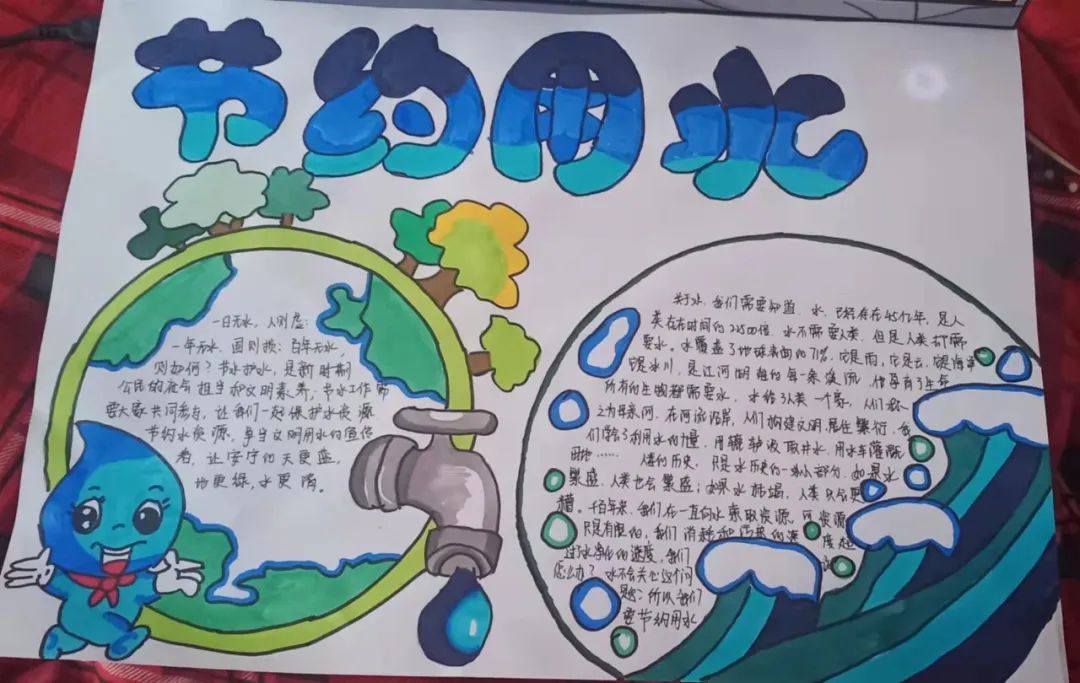 节约用水
一日无水，人则虚；
一年无水，国则殇；百年无水，
则如何？节水护水，是新时期
公民的社会担当和文明素养，节水工作需
要大家共同参与，让我们一起保护水资源
节约水资源，争当文明用水的宣传
者，让安宁的天更蓝，
地更绿，水更清。
关于水，我们需要知道，水，已经存在45亿年，是人
类存在时间的2250倍，水不需要人类，但是人类却需
要水。水覆盖了地球表面的71%，它是雨，它是云，它是海洋
它是冰川，是江河湖泊的每一条溪流，
所有的生物都需要水，水给了人类一个家，人们称
之为母亲河，在河流沿岸，人们构建文明，居住繁衍，我
们学会了利用水的力量，用辘轳汲取井水，用水车灌溉
田地……人类的历史，只是水历史的一小部分，如果水
繁盛，人类也会繁盛；如果水枯竭，人类只会更
糟。千百年来，我们在一直向水索取资源，可资源
只是有限的，我们消耗和污染的速度超
过了水净化的速度，我们
怎么办？水不会关心这个问
题；所以我们
要节约用水